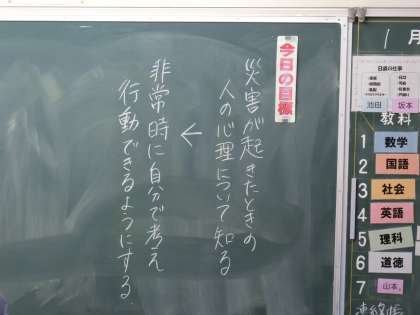 今日の目標
災害が起きたときの
人の心理について知る
↓
非常時に自分で考え
行動できるようにする。
1月
日直の仕事
池田
坂本
教科
1 数学
2 国語
3 社会
4 英語
5 理科
6 道徳
7 山本
連絡帳